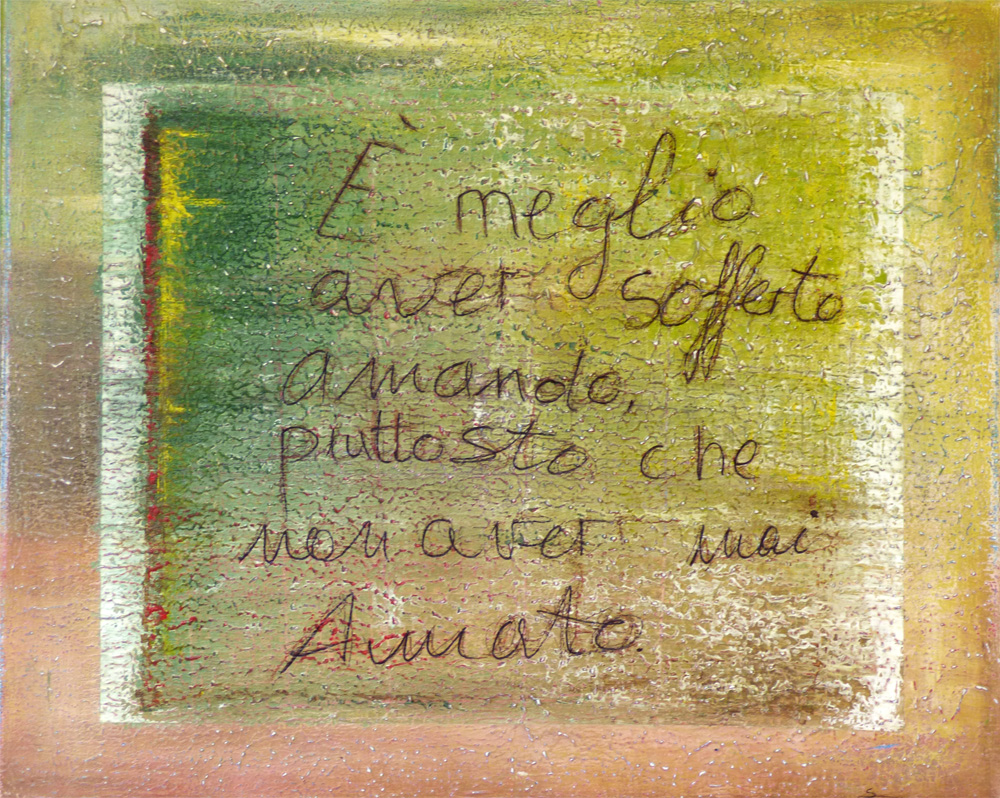 È meglio
aver sofferto
amando,
piuttosto che
non aver mai
Amato.